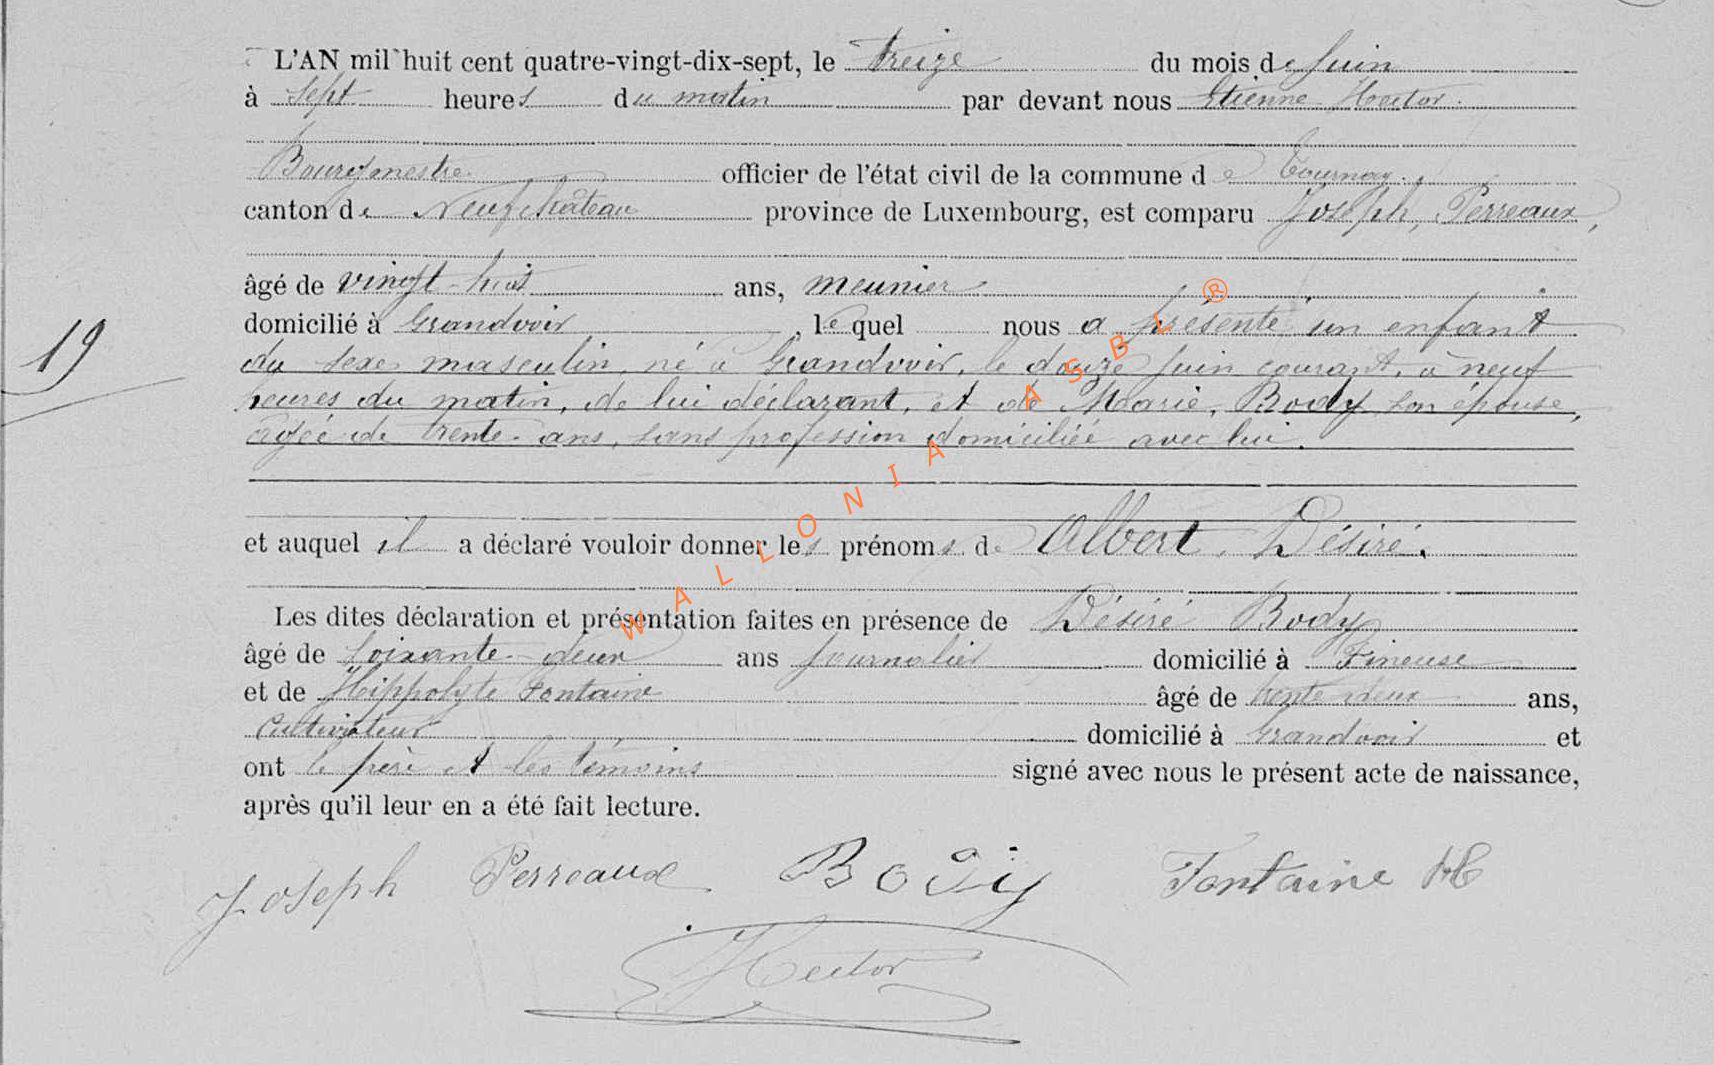 L'AN mil huit cent quatre-vingt-dix-sept, le treize du mois de Juin
à sept heures du matin par devant nous Etienne Hector.
Bourgmestre officier de l'état civil de la commune de Tournay.
canton de Neufchâteau province de Luxembourg, est comparu Joseph, Perreaux,
âgé de vingt-huit ans, meunier
domicilié à Grandvoir, lequel nous a présenté un enfant
19
du sexe masculin, né à Grandvoir, le douze Juin courant, à neuf
heures du matin, de lui déclarant, et de Marie, Body, son épouse,
agée de trente-ans, sans profession domiciliée avec lui.
et auquel il a déclaré vouloir donner les prénoms de Albert, Désiré.
Les dites déclaration et présentation faites en présence de Désiré Body
âgé de soixante-deux ans journalier domicilié à Fineuse
et de Hippolyte Fontaine âgé de trente-deux ans,
Cultivateur domicilié à Grandvoir et
ont le père et les témoins signé avec nous le présent acte de naissance,
après qu'il leur en a été fait lecture.
Joseph Perreaux Body Fontaine H
Hector
WALLONIA ASBL ®